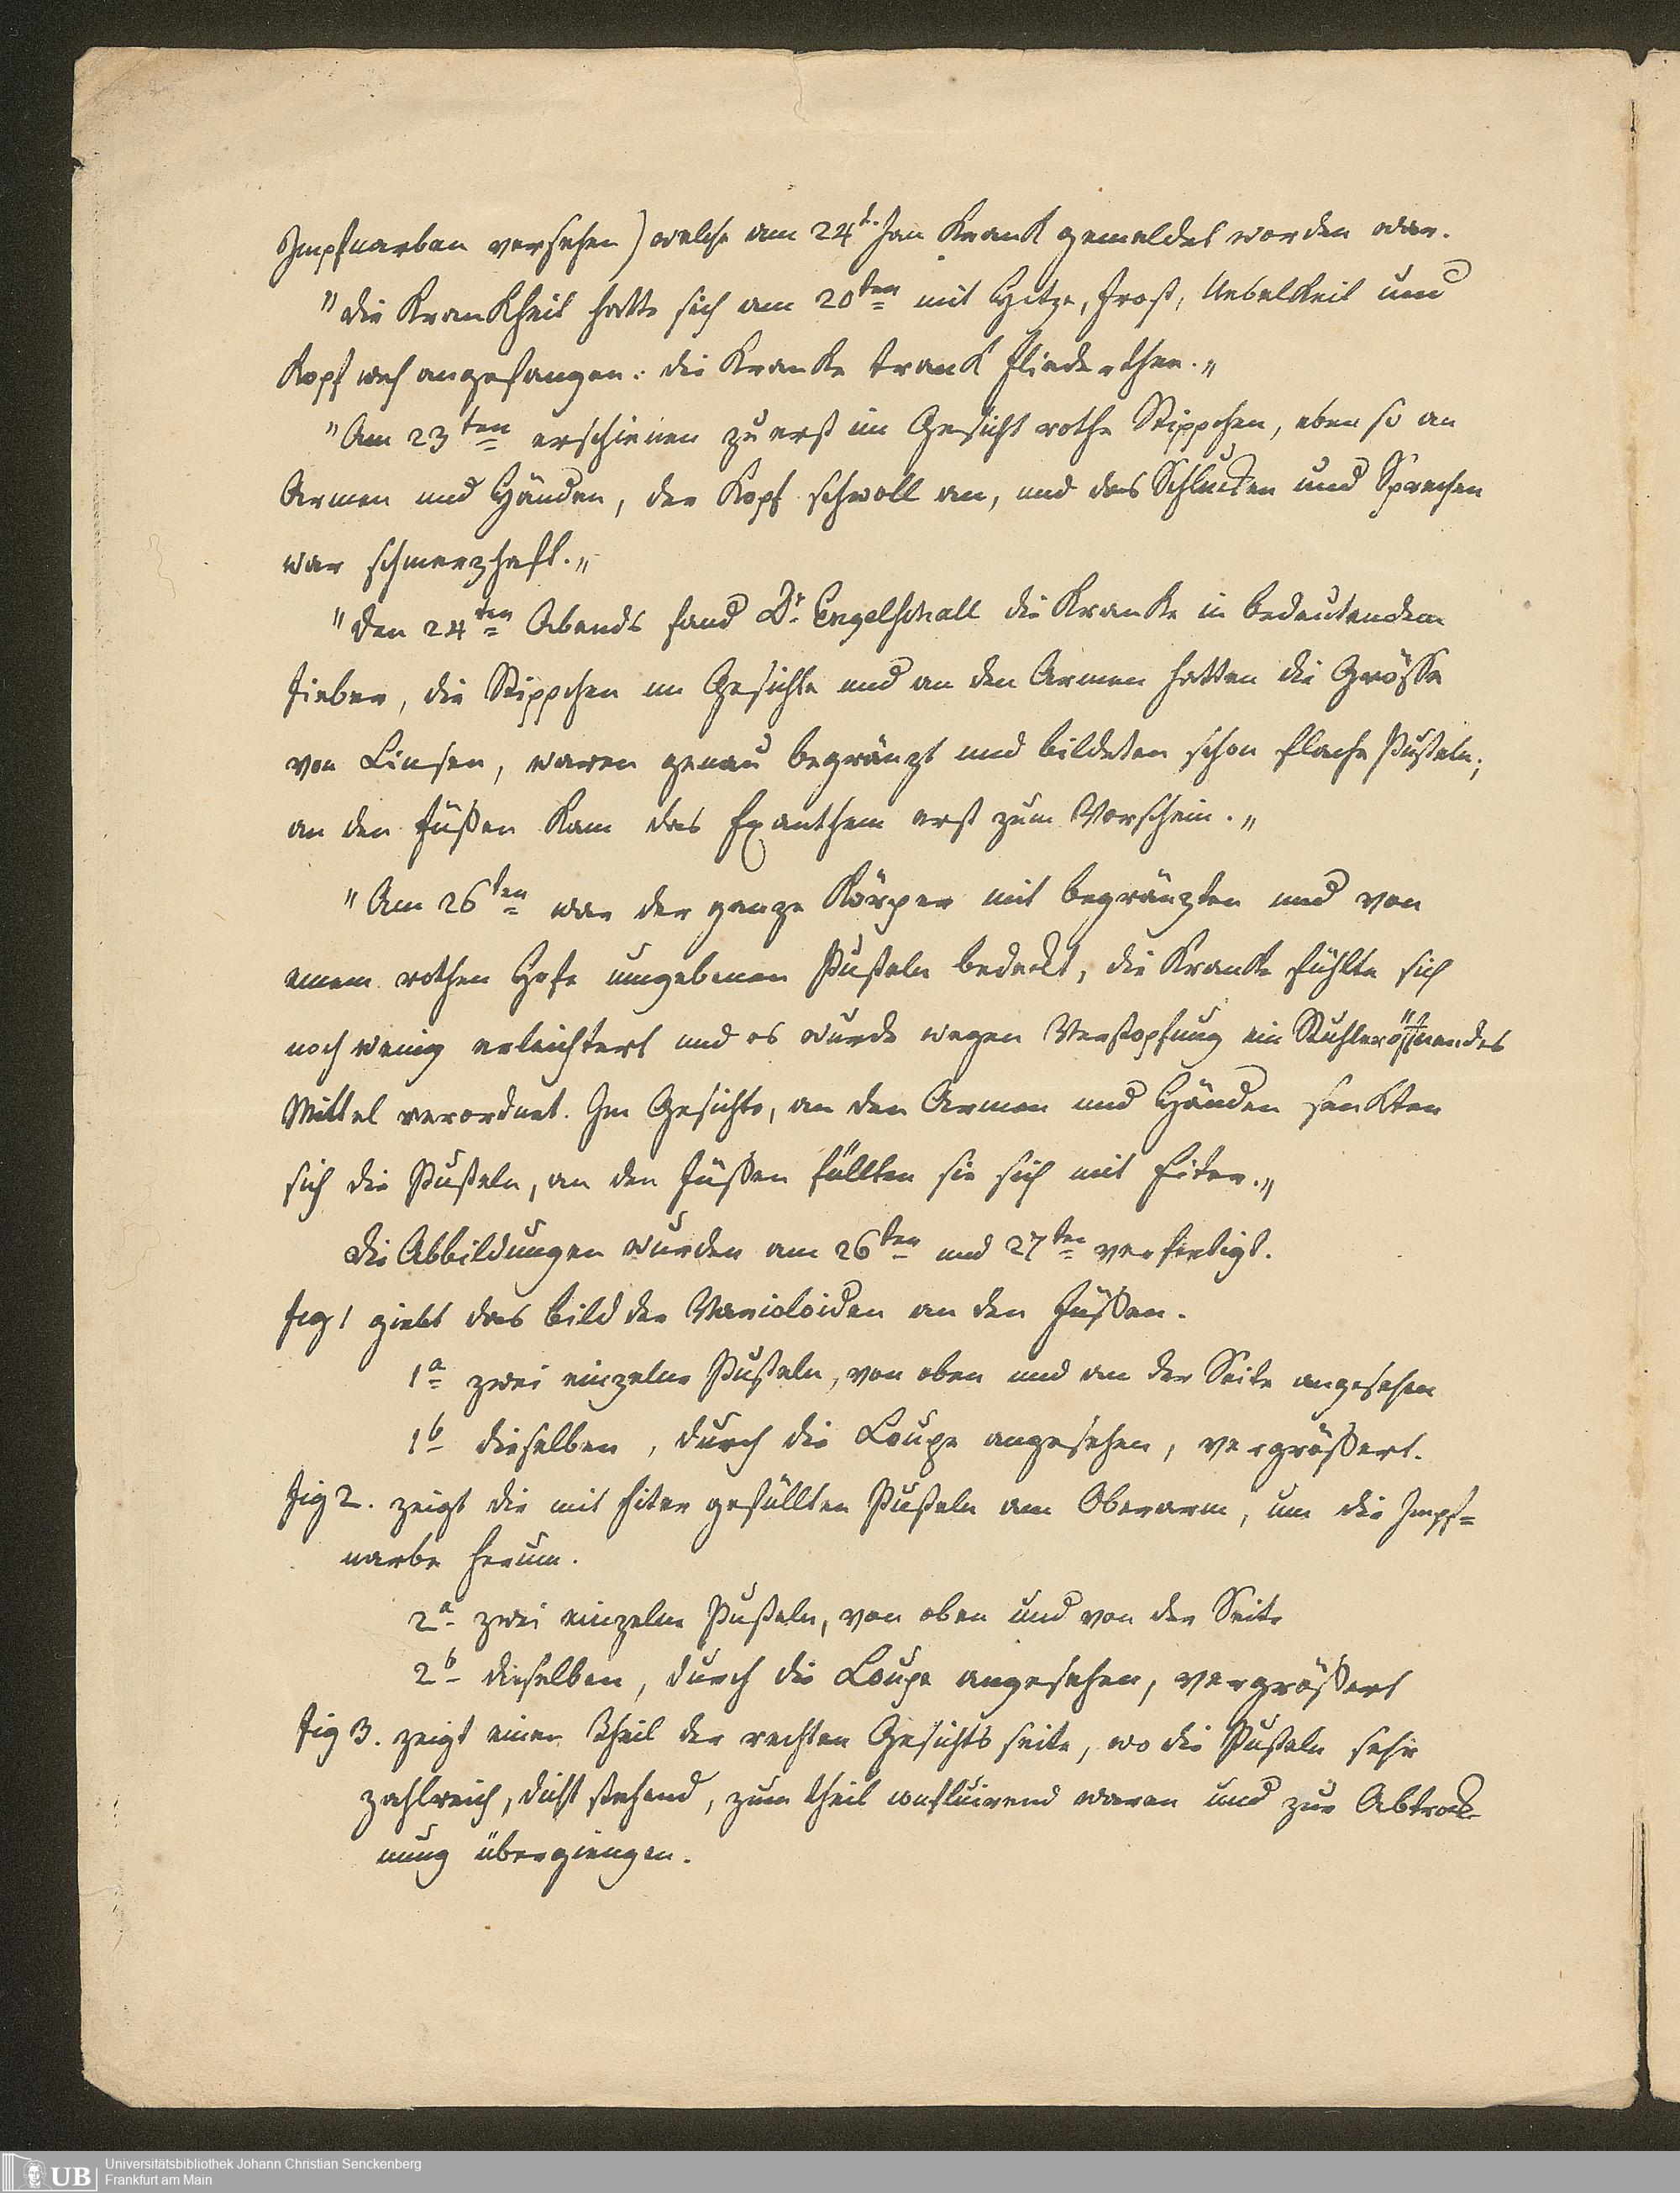 Impfnarben versehen) welche am 24t. Jan Krank gemeldet worden war.
"Die Krankheit hatte sich am 20ten mit Hitze, Frost, Uebelkeit und
Kopfweh angefangen: die Kranke trank Fliederthee."
"Am 23ten erschienen zuerst im Gesicht rothe Stippchen, eben so an
Armen und Händen, der Kopf schwoll an, und das Schlucken und Sprechen
war schmerzhaft."
"Den 24ten Abends fand Dr. Engelschall die Kranke in bedeutendem
Fieber, die Stippchen im Gesichte und an den Armen hatten die Grösse
von Linsen, waren genau begränzt und bildeten schon flache Pusteln;
an den Füßen kam das Exanthem erst zum Vorschein."
"Am 26ten war der ganze Körper mit begränzten und von
einem rothen Hofe umgebenen Pusteln bedeckt, die Kranke fühlte sich
noch wenig erleichtert und es wurde wegen Verstopfung ein Stuhleröffnendes
Mittel verordnet. Im Gesichte, an den Armen und Händen senkten
sich die Pusteln, an den Füßen füllten sie sich mit Eiter."
Die Abbildungen wurden am 26ten und 27ten verfertigt.
Fig 1 giebt das Bild der Varioloiden an den Füßen.
1a zwei einzelne Pusteln, von oben und an der Seite angesehen
1b dieselben, durch die Loupe angesehen, vergrößert.
Fig 2. zeigt die mit Eiter gefüllten Pusteln am Oberarm, um die Impf=
narbe herum.
2a zwei einzelne Pusteln, von oben und von der Seite
2b dieselben, durch die Loupe angesehen, vergrößert
Fig 3. zeigt einen Theil der rechten Gesichtsseite, wo die Pusteln sehr
zahlreich, dicht stehend, zum theil confluirend waren und zur Abtrock-
nung übergiengen.
UB Universitätsbibliothek Johann Christian Senckenberg
Frankfurt am Main